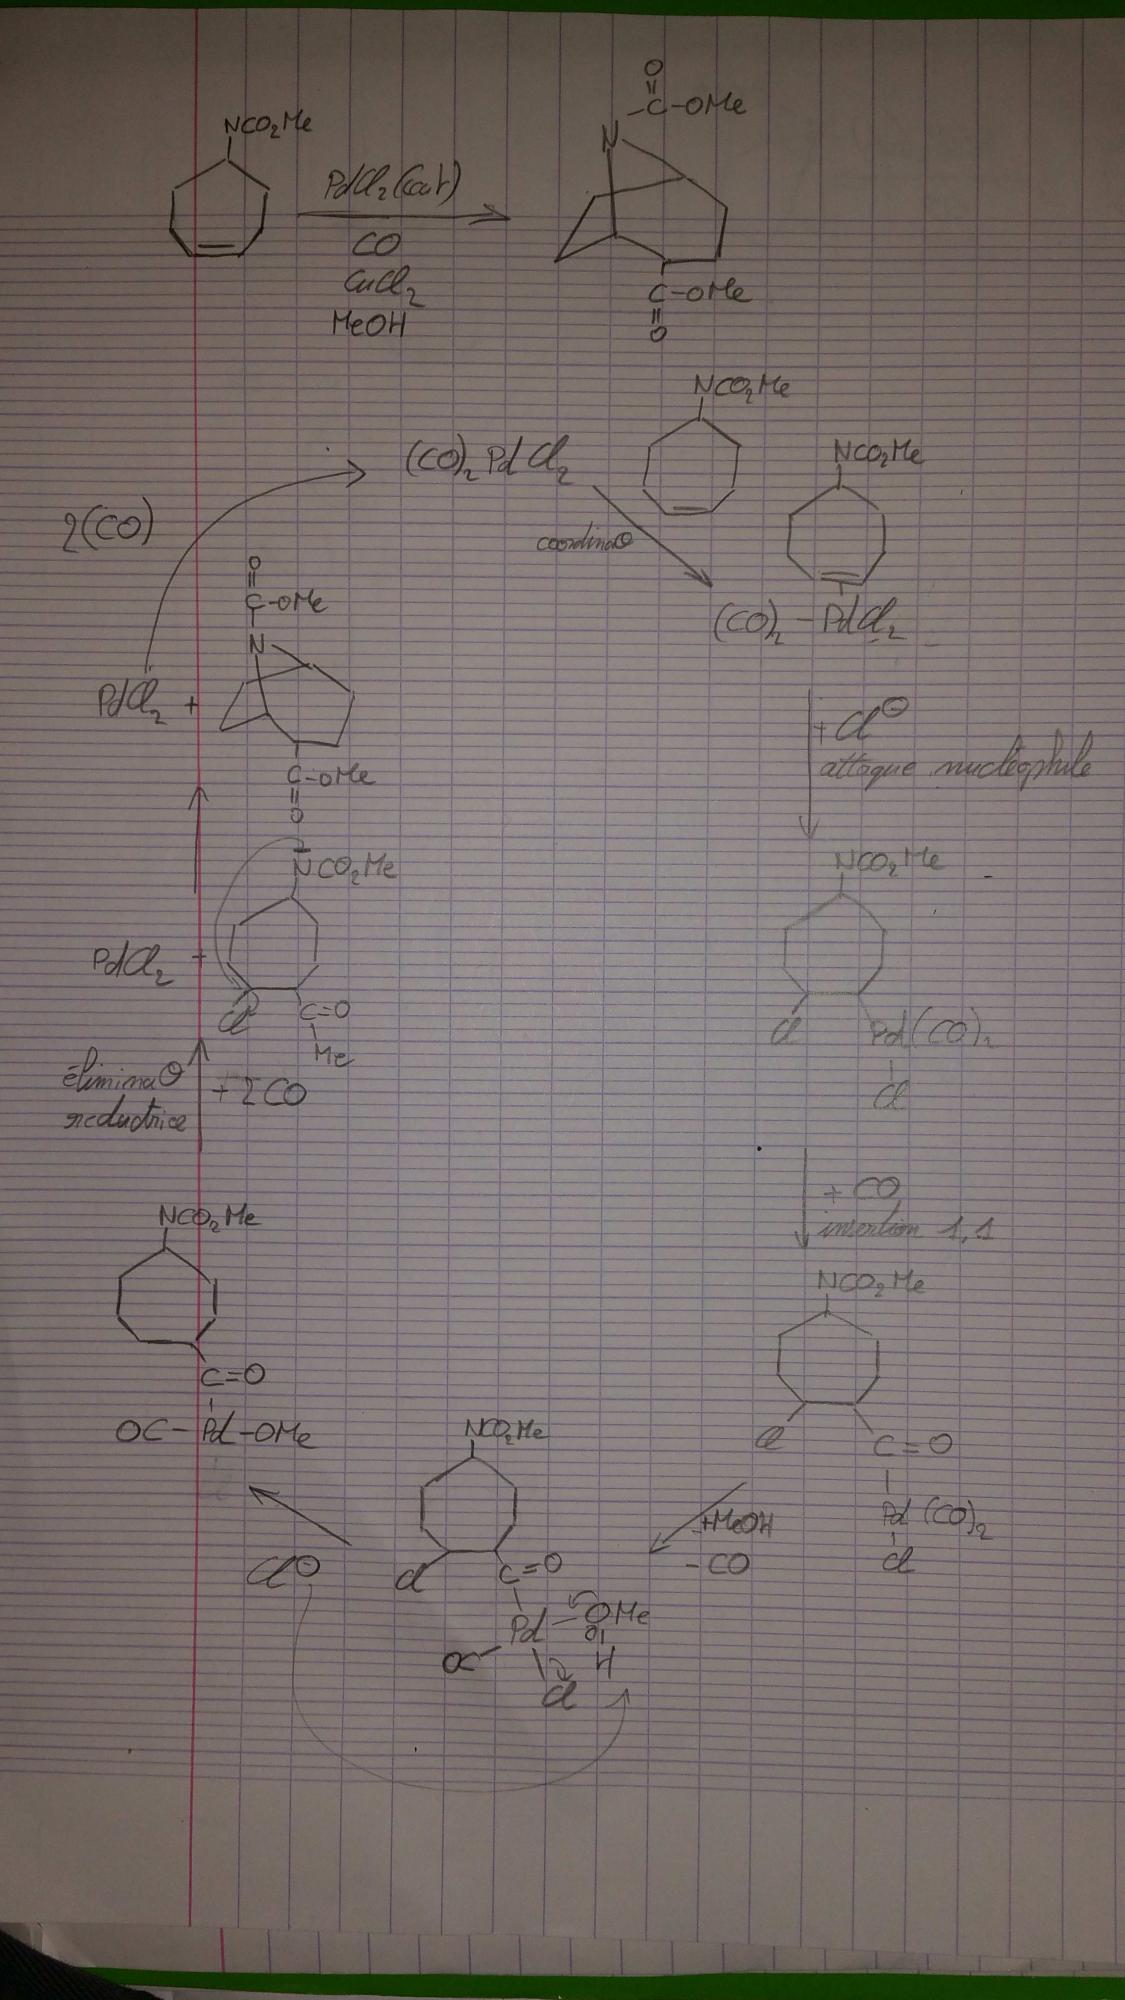 O
C-OMe
NCO2Me
N
PdCl2(cat)
CO
CuCl2
MeOH
C-OMe
O
NCO2Me
(CO)2PdCl2
NCO2Me
2(CO)
coordinaΘ
O
C-OMe
N
(CO)2-PdCl2
PdCl2 +
+ Cl⊖
attaque nucléophile
C-OMe
O
NCO2Me
NCO2Me
PdCl2 +
Cl
C=O
Me
Cl
Pd(CO)2
Cl
éliminaΘ
réductrice
+ 2CO
+ CO
insertion 1,1
NCO2Me
NCO2Me
C=O
OC-Pd-OMe
NCO2Me
Cl
C=O
Pd(CO)2
Cl
+MeOH
-CO
Cl⊖
Cl
C=O
Pd-OMe
OC
H
Cl